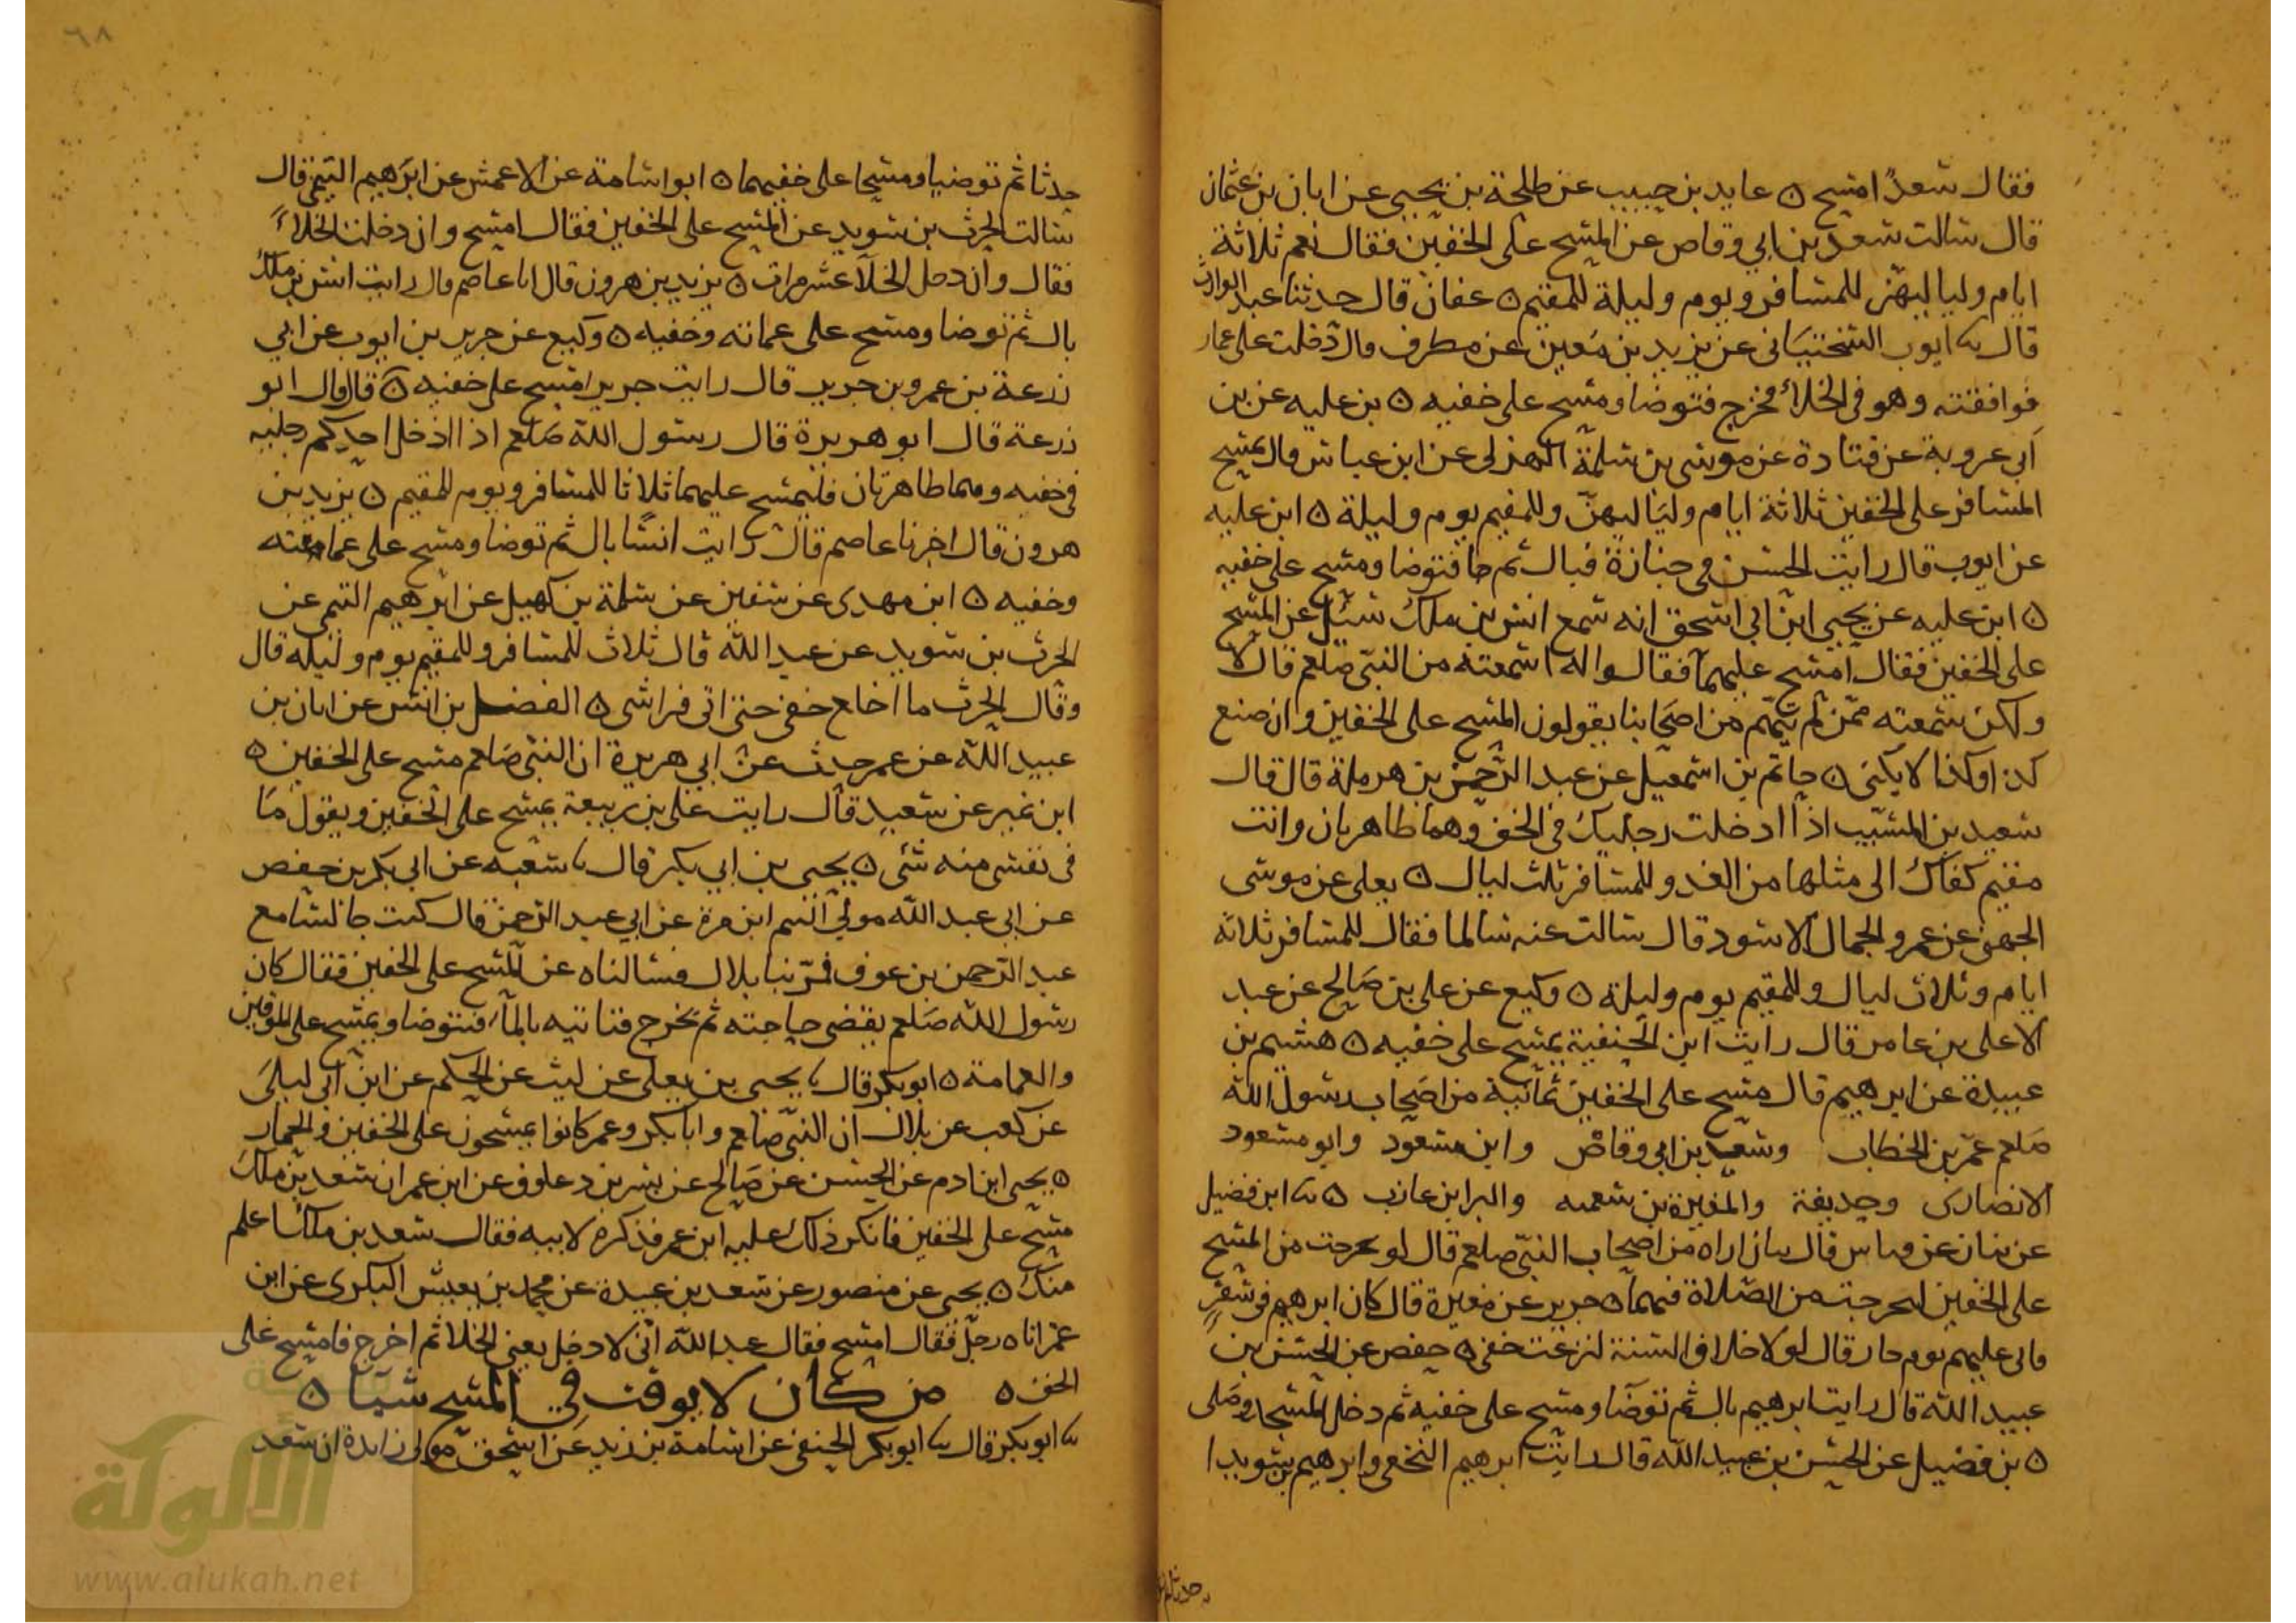 فقال سعد امسح ه عايد بن حبيب عن طلحة بن يحيى عن ابان بن عثمان
قال سالت سعد بن ابي وقاص عن المسح على الخفين فقال نعم ثلاثة
ايام ولياليهن للمسافر ويوم وليلة للمقيم ه عفان قال حدثنا عبد الوارث
قال ثنا ايوب السختياني عن يزيد بن معين عن مطرف قال دخلت على عمار
فوافقته وهو في الخلاء فخرج فتوضا ومسح على خفيه ه بن عليه عن بن
ابي عروبة عن قتادة عن موسى بن سلمة الهزلي عن ابن عباس قال يمسح
المسافر على الخفين ثلاثة ايام ولياليهن وللمقيم يوم وليلة ه ابن عليه
عن ايوب قال رايت الحسن في جنازة فبال ثم جا فتوضا ومسح على خفيه
ه ابن عليه عن يحيى ابن ابي اسحق انه سمع انس بن ملك سئل عن المسح
على الخفين فقال امسح عليهما فقالوا له اسمعته من النبي صلعم قال لا
ولكن سمعته ممن لم يتهم من اصحابنا يقولون المسح على الخفين وان صنع
كذا وكذا لا يكنى ه حاتم بن اسمعيل عن عبد الرحمن بن هرملة قال قال
سعيد بن المسيب اذا ادخلت رجليك في الخف وهما طاهرتان وانت
مقيم كفاك الى مثلها من الغد وللمسافر ثلث ليال ه يعلى عن موسى
الجهني عن عمرو الجمال الاسود قال سالت عنه سالما فقال للمسافر ثلاثة
ايام وثلاث ليال وللمقيم يوم وليلة ه وكيع عن علي بن صالح عن عبد
الاعلى بن عامر قال رايت ابن الحنفية يمسح على خفيه ه هشيم بن
عبيدة عن ابرهيم قال مسح على الخفين ثمانية من اصحاب رسول الله
صلعم عمر بن الخطاب وسعد بن ابي وقاص وابن مسعود وابو مسعود
الانصارى وحديفة والمغيرة بن شعبه والبرا بن عازب ه ثنا ابن فضيل
عن بنان عن قال اراه من اصحاب النبي صلعم قال لو حرجت من المسح
على الخفين لحرجت من الصلاة فيهما ه جرير عن مغيرة قال كان ابرهيم في سفر
فاتى عليهم يوم حار قال لولا خلاف السنة لنزعت خفي ه حفص عن الحسن بن
عبيد الله قال رايت ابرهيم بال ثم توضا ومسح على خفيه ثم دخل المسجد وصلى
ه بن فضيل عن الحسن بن عبيد الله قال رايت ابرهيم النخعي وابرهيم بن سويد ا
٦٨
حدثا ثم توضيا ومسحا على خفيهما ه ابو اسامة عن الاعمش عن ابرهيم التيمي قال
سالت الحرث بن سويد عن المسح على الخفين فقال امسح وان دخلت الخلاء
فقال وان دخل الخلا عشر مرات ه يزيد بن هرون قال انا عاصم قال رايت انس بن ملك
بال ثم توضا ومسح على عمامته وخفيه ه وكيع عن جرير بن ايوب عن ابي
زرعة بن عمرو بن جرير قال رايت جريرا مسح على خفيه ه قال وقال ابو
زرعة قال ابو هريرة قال رسول الله صلعم اذا ادخل احدكم رجليه
في خفيه وهما طاهرتان فليمسح عليهما ثلاثا للمسافر ويوم للمقيم ه يزيد بن
هرون قال اخبرنا عاصم قال رايت انسا بال ثم توضا ومسح على عمامته
وخفيه ه ابن مهدى عن سفين عن سلمة بن كهيل عن ابرهيم التيمي عن
الحرث بن سويد عن عبد الله قال ثلاث للمسافر وللمقيم يوم وليله قال
وقال الحرث ما اخلع خفي حتى اتى فراشي ه الفضل بن انس عن ابان بن
عبيد الله عن عمر حدث عن ابي هريرة ان النبي صلعم مسح على الخفين ه
ابن نمير عن سعيد قال رايت على بن ربيعة يمسح على الخفين ويقول ما
في نفسي منه شئ ه يحيى بن ابي بكير قال ثنا شعبه عن ابي بكر بن حفص
عن ابي عبد الله مولى التيم ابن مرة عن ابي عبد الرحمن قال كنت جالسا مع
عبد الرحمن بن عوف فمر بنا بلال فسالناه عن المسح على الخفين فقال كان
رسول الله صلعم يقضي حاجته ثم يخرج فتاتيه بالماء فيتوضا ويمسح على الموقين
والعمامة ه ابو بكر قال ثنا يحيى بن يعلى عن ليث عن الحكم عن ابن ابي ليلى
عن كعب عن بلال ان النبي صلعم وابا بكر وعمر كانوا يمسحون على الخفين والخمار
ه يحيى ابن ادم عن الحسن عن صالح عن بسر بن دعلوف عن ابن عمر ان سعد بن ملك
مسح على الخفين فانكر ذلك عليه ابن عمر فذكره لابيه فقال سعد بن ملك اعلم
منك ه يحيى عن منصور عن سعد بن عبيدة عن محمد بن يعيش البكرى عن ابن
عمر اتاه رجل فقال امسح فقال عبد الله اني لا دخل يعني الخلا ثم اخرج فامسح على
الخف ه من كان لا يوقت في المسح شيا ه
ثنا ابو بكر قال ثنا ابو بكر الحنفي عن اسامة بن زيد عن اسحق مولى زايدة ان سعد
الألوكة
www.alukah.net